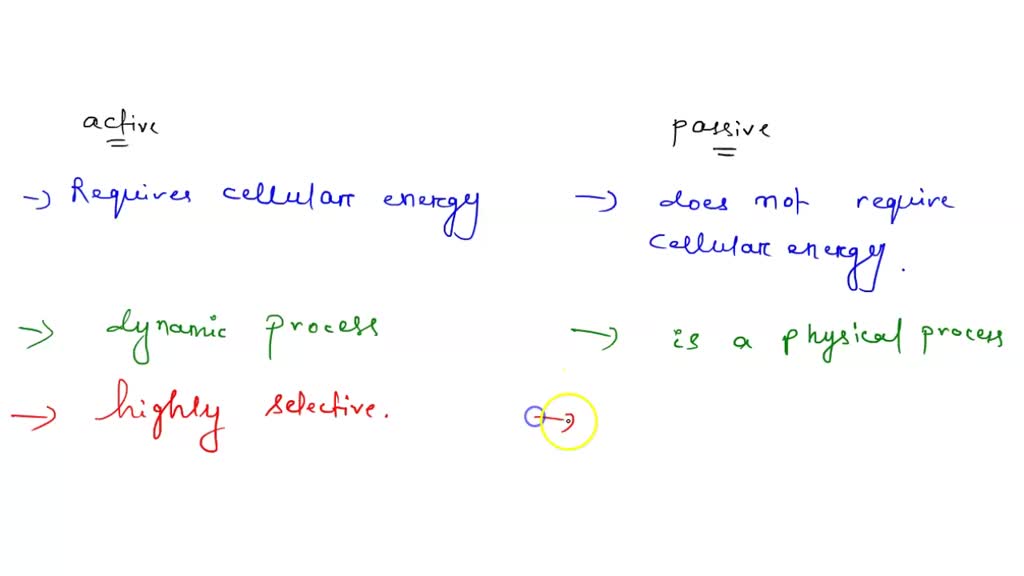 active
passive
→ Requires cellular energy
→ does not require
cellular energy.
→ dynamic process
→ is a physical process
→ highly selective.
→